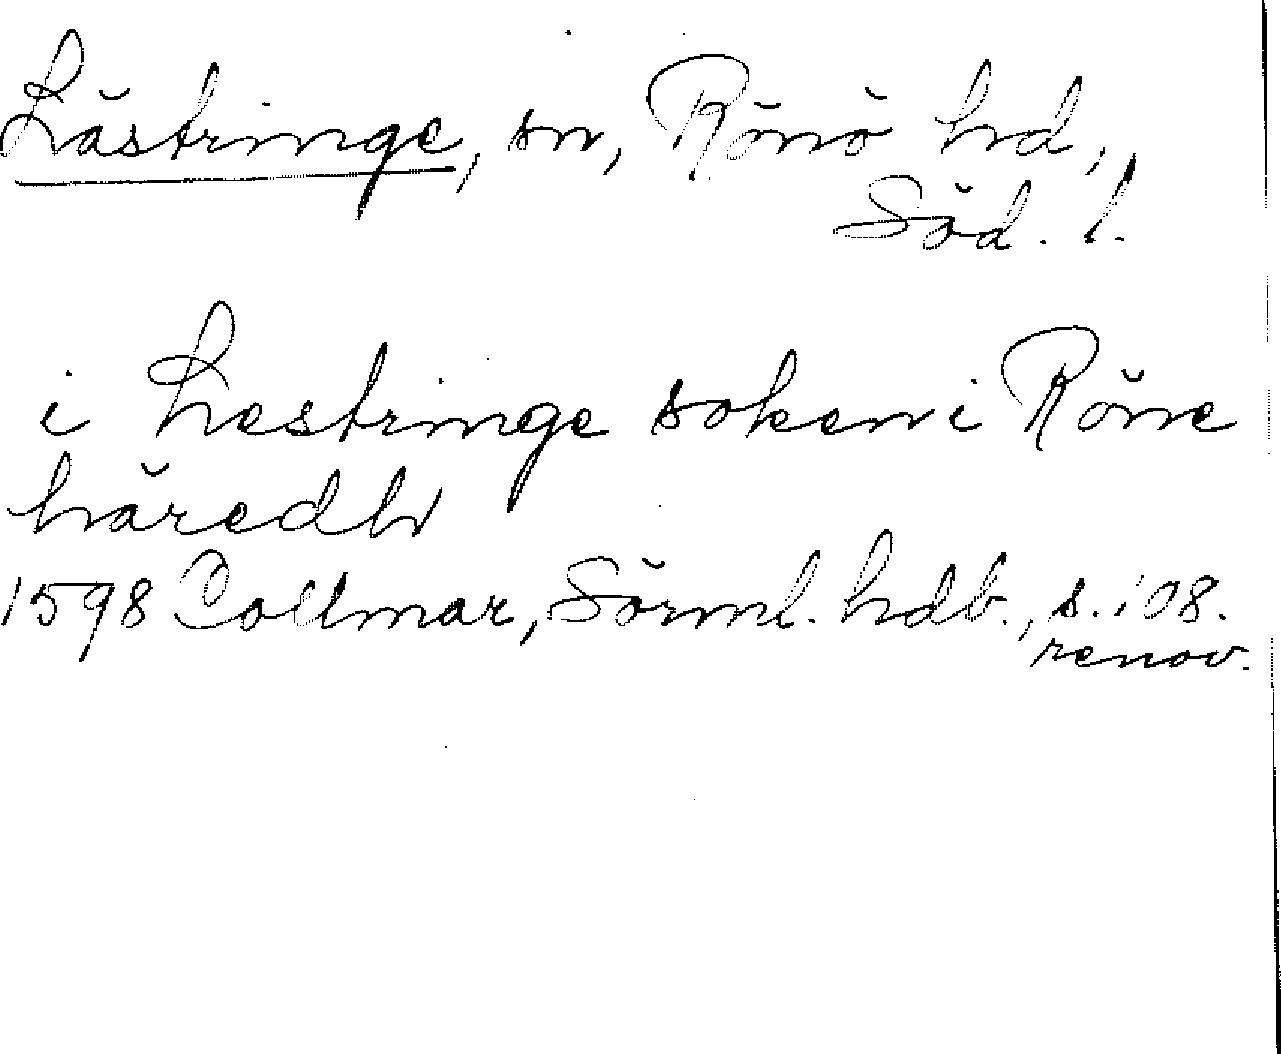 Lästringe, sn, Rönö hd,
Söd. l.
i Lestringe soken i Röne
häredh
1598 Collmar, Sörml. hdb., s. 108.
renov.